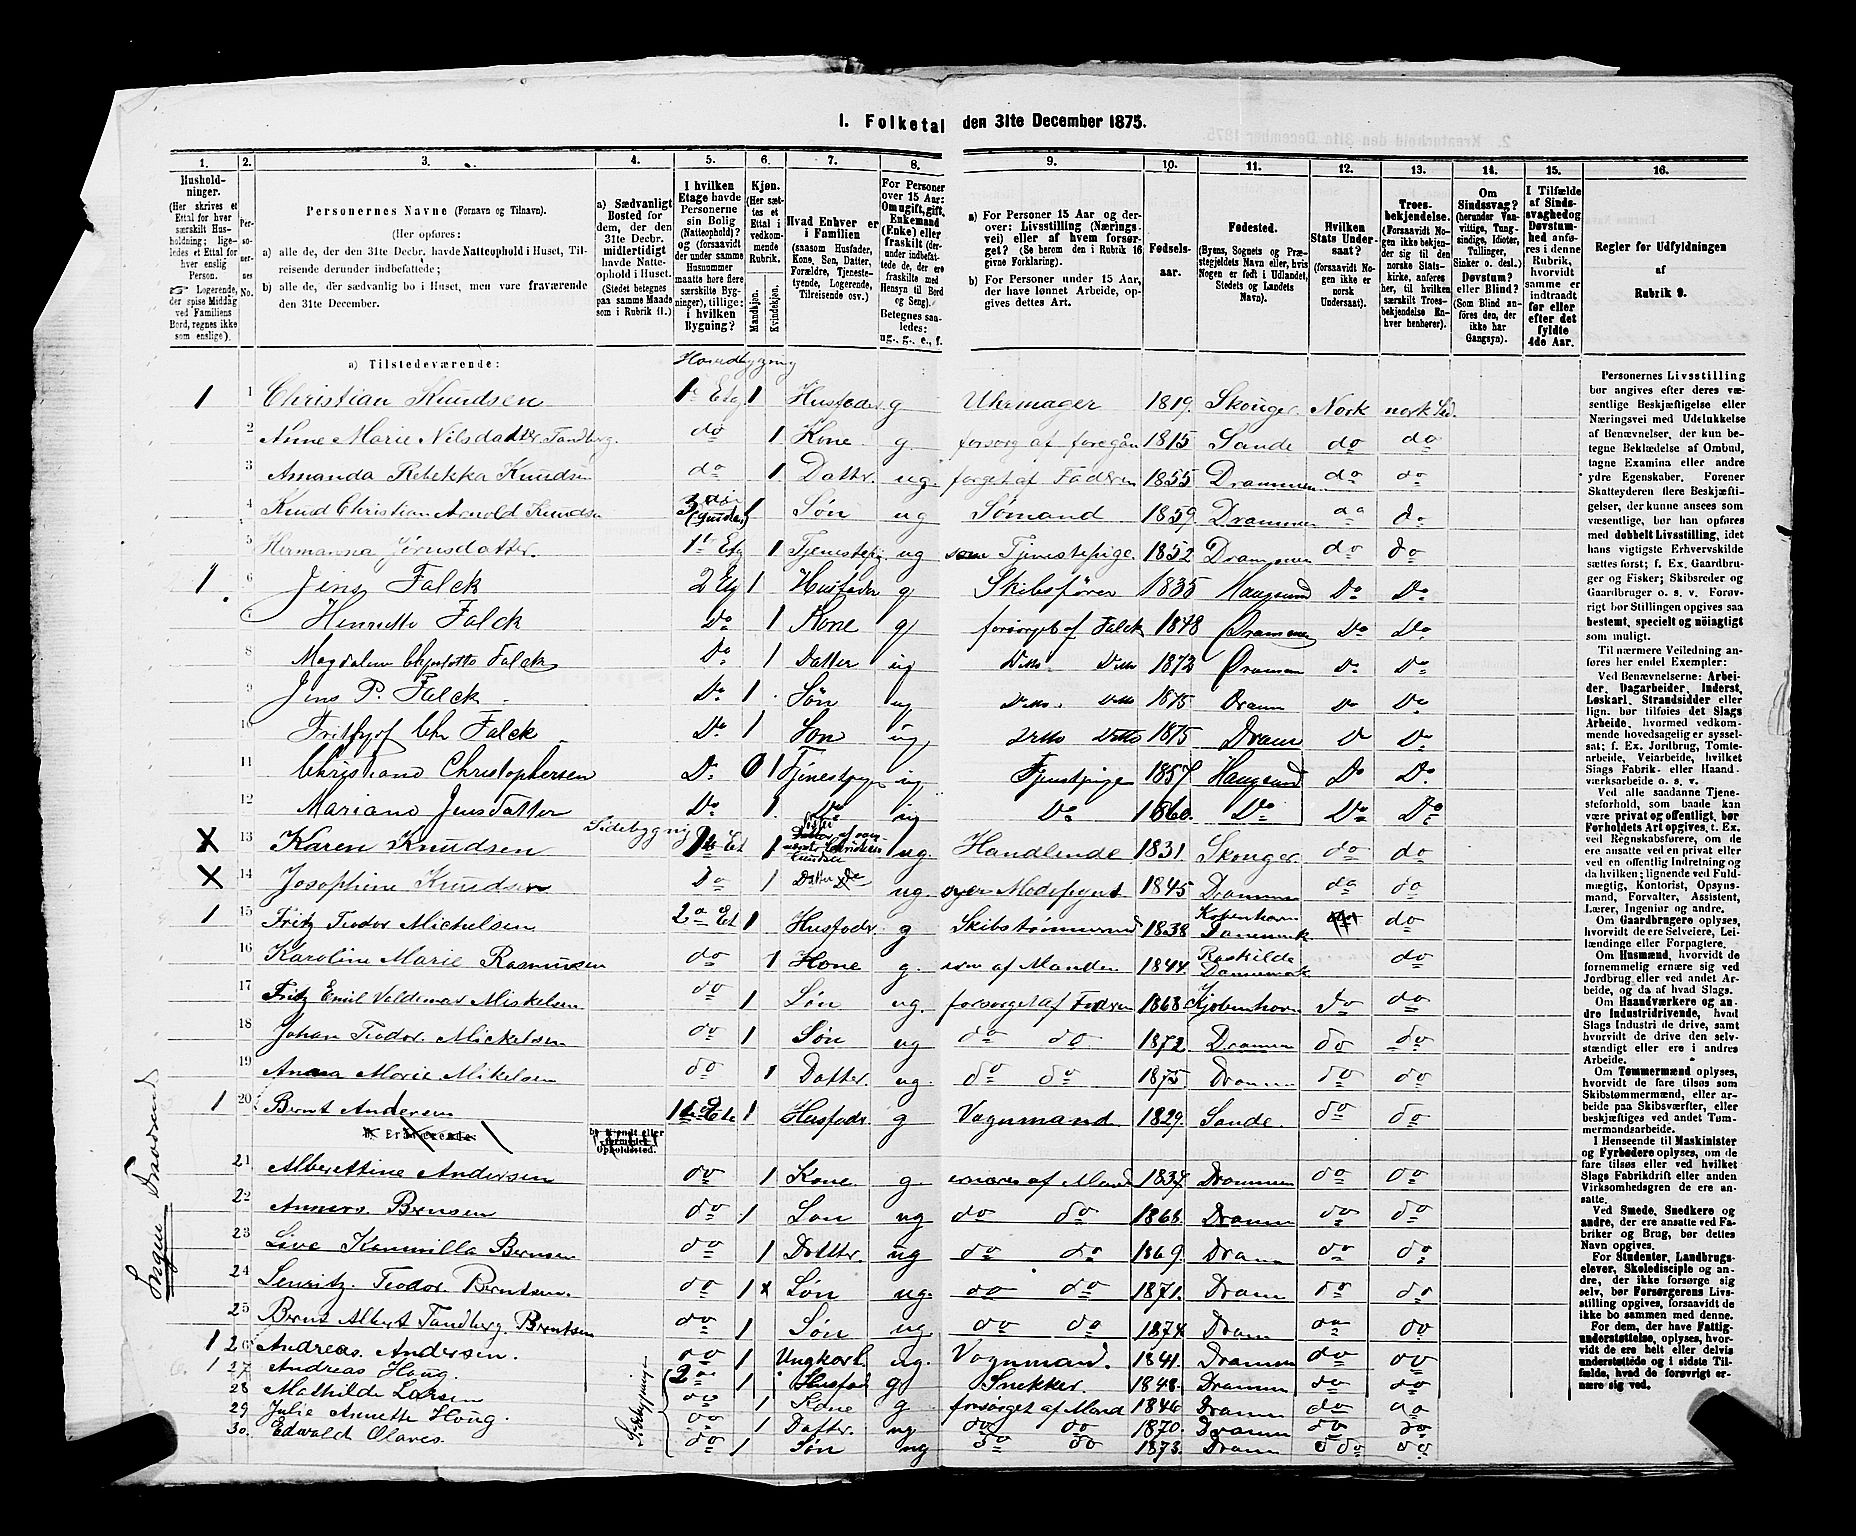 1. Folketal den 31te December 1875.
1. 2. 3. 4. 5. 6. 7. 8. 9. 10. 11. 12. 13. 14. 15. 16.
Hushold-
ninger.
(Her skrives et
Ettal for hver
særskilt Hus-
holdning; lige-
ledes et Ettal for
hver enslig
Person.
☞ Logerende,
der spise Middag
ved Familiens
Bord, regnes ikke
som enslige).
Per-
so-
ner-
nes
No.
Personernes Navne (Fornavn og Tilnavn).
(Her opføres:
a) alle de, der den 31te Decbr. havde Natteophold i Huset, Til-
reisende derunder indbefattede;
b) alle de, der sædvanlig bo i Huset, men vare fraværende
den 31te December.
a) Sædvanligt
Bosted for
dem, der den
31te Decbr.
midlertidigt
havde Natte-
ophold i Huset.
(Stedet betegnes
paa samme Maade
som i Rubrik 11.)
I hvilken
Etage havde
Personerne
sin Bolig
(Natteophold)?
og (forsaavidt
der under samme
Husnummer
maatte høre flere
særskilte Byg-
ninger), tillige:
i hvilken
Bygning?
Kjøn.
(Her sæt-
tes et
Ettal i
vedkom-
mende
Rubrik.
Mandkjøn.
Kvindekjøn.
Hvad Enhver er
i Familien
(saasom Husfader,
Kone, Søn, Datter,
Forældre, Tjeneste-
tyende, Logerende,
Tilreisende osv.)
For Personer
over 15 Aar:
Om ugift, gift,
Enkemand
(Enke) eller
fraskilt (der-
under indbefat-
tede de, der ere
fraskilte med
Hensyn til Bord
og Seng).
Betegnes saa-
ledes:
ug., g., e., f.
a) For Personer 15 Aar og der-
over: Livsstilling (Nærings-
vei) eller af hvem forsør-
get? (Se herom den i Rubrik 16
givne Forklaring).
b) For Personer under 15 Aar,
der have lønnet Arbeide, op-
gives dettes Art.
Fødsels-
aar.
Fødested.
(Byens, Sognets og Præ-
stegjeldets Navn eller, hvis
Nogen er født i Udlandet,
Stedets og Landets
Navn).
Hvilken
Stats Under-
saat?
(forsaavidt No-
gen ikke er
norsk
Undersaat).
Troes-
bekjendelse.
(Forsaavidt No-
gen ikke bekjen-
der sig til den
norske Stats-
kirke, anføres
her, til hvilken
særskilt Troes-
bekjendelse En-
hver henhører).
Om
Sindssvag?
(herunder Van-
vittige, Tung-
sindige, Idioter,
Tullinger,
Sinker o. desl.)
Døvstum?
eller Blind?
(Som Blind an-
føres den, der
ikke har
Gangsyn).
I Tilfælde
af Sinds-
svaghed og
Døvstum-
hed anfø-
res i denne
Rubrik,
hvorvidt
samme er
indtraadt
før eller
efter det
fyldte
4de Aar.
Regler for Udfyldningen
af
Rubrik 9.
a) Tilstedeværende:
1 1 Christian Knudsen 1 Etg 1 Husfader g Uhrmager 1819 Skouger Nork nork
2 Anne Marie Nilsdatter Tandberg. do 1 Kone g. forsørg af foregån 1815 Sande do do
3 Amanda Rebekka Knudsen do 1 Datter ug 1855 Drammen do do
4 Knud Christian Arnold Knudsen 1 Søn ug Sømand 1859 Drammen do do
5 Hermanna 1 Etg 1 Tjenestepig ug Tjenestepige 1852 Drammen do do
1 6 Jens Falck 2 Etg 1 Husfader g Skibsfører 1835 Haugsund Do Do
7 Henriette Falck Do 1 Kone g forsørget af Falck 1848 Drammen Do Do
8 Magdalene Falck Do 1 Datter ug Ditto Ditto 1872 Drammen Do Do
9 Jens P. Falck Do 1 Søn ug Ditto Ditto 1875 Dramm Do Do
10 Fritjof Chr Falck Do 1 Søn ug Ditto Ditto 1875 Dram D Do
11 Christiane Christophersen Do 0 1 ug 1857 Haugsund Do Do
12 Mariane Jensdatter Do 1 Do ug Do 1860 Do Do Do
X 13 Karen Knudsen Sidebygnig 1 Et 1 ug. Handlende 1831 Skouger do do
X 14 Josephine Knudsen Do 1 Datter Do ug 1845 Drammen do do
1 15 Fritz Teodor Michelsen 2 Et 1 Husfader g Skibstømmermand 1838 Kobenhavn Danemark do
16 Karoline Marie Rasmussen do 1 Kone g. af Manden 1844 Roskilde Danemark do
17 Fritz Emil Valdemar Mikelsen do 1 Søn ug. forsørget af Faderen 1868 Kjøbenhavn do do
18 Johan Teodor Mickelsen do 1 Søn ug do do 1872 Dramen do do
19 Anna Marie Mikelsen do 1 Datter ug. do do 1875 Dramen do do
1 20 Bernt Andersen 1 Etg 1 Husfader g Vognmand 1829 Sande do do
b) Fraværende:
b) Kjendt eller
formodet
Opholdssted.
21 Alberettine Andersen do 1 Kone g. af Mand 1834 Drammen do do
22 Anners Bernsen do 1 Søn ug do do 1866 Dramen do do
23 Live Kammilla Bernsen do 1 Datter ug do do 1869 Dramen do do
24 Teodor Berntsen do 1 x Søn ug. do do 1871 Dram do do
25 Bernt Albert Tandberg Berntsen do 1 Søn ug. do do 1874 Dram do do
1 26 Andreas Andersen. do 1 Ungkarl. ug. Vognmand. 1841 Dramen do do
1 27 Andreas Houg. 2 1 Husfad g Snekker. 1848 Drammen do do
28 Mathilde Larsen do 1 Kone g forsørget af Mand 1846 Dramen do do
29 Julie Annette Houg. do 1 Datter ug do do 1870 Dramen do do
30. Edvald Olaves. do 1 Søn ug do do 1873 Dramen do do
Sidebygning
Ingen Fraværend
Personernes Livsstilling
bør angives efter deres væ-
sentlige Beskjæftigelse eller
Næringsvei med Udelukkelse
af Benævnelser, der kun be-
tegne Beklædelse af Ombud,
tagne Examina eller andre
ydre Egenskaber. Forener
Skatteyderen flere Beskjæfti-
gelser, der kunne ansees som
væsentlige, bør han opføres
med dobbelt Livsstilling, idet
hans vigtigste Erhvervskilde
sættes først; f. Ex. Gaardbru-
ger og Fisker; Skibsreder og
Gaardbruger o. s. v. Forøv-
rigt bør Stillingen opgives saa
bestemt, specielt og nøiagtigt
som muligt.
Til nærmere Veiledning an-
føres her endel Exempler:
Ved Benævnelserne: Arbei-
der, Dagarbeider, Inderst,
Løskarl, Strandsidder eller
lign. bør tilføies det Slags
Arbeide, hvormed vedkom-
mende hovedsagelig er syssel-
sat; f. Ex. Jordbrug, Tomte-
arbeide, Veiarbeide, hvilket
Slags Fabrik- eller Haand-
værksarbeide o. s. v.
Ved alle saadanne Tjene-
steforhold, som baade kan
være privat og offentligt, bør
Forholdets Art opgives, t. Ex.
ved Regnskabsførere, om de
ere ansatte ved en privat eller
ved en offentlig Indretning og
da hvilken; lignende ved Fuld-
mægtig, Kontorist, Opsyns-
mand, Forvalter, Assistent,
Lærer, Ingeniør og andre.
Om Gaardbrugere oplyses,
hvorvidt de ere Selveiere, Lei-
lændinge eller Forpagtere.
Om Husmænd, hvorvidt de
fornemmelig ernære sig ved
Jordbrug eller ved andet Ar-
beide, og da af hvad Slags.
Om Haandværkere og an-
dre Industridrivende, hvad
Slags Industri de drive, samt
hvorvidt de drive den selv-
stændigt eller ere i andres
Arbeide.
Om Tømmermænd oplyses,
hvorvidt de fare tilsøs som
Skibstømmermænd, eller ar-
beide paa Skibsværfter, eller
beskjæftiges ved andet Tøm-
mermandsarbeide.
I Henseende til Maskinister
og Fyrbødere oplyses, om de
fare tilsøs eller ved hvilket
Slags Fabrikdrift eller anden
Virksomhedsgren de ere an-
satte.
Ved Smede, Snedkere og
andre, der ere ansatte ved Fa-
briker og Brug, bør dettes
Navn opgives.
For Studenter, Landbrugs-
elever, Skoledisciple og an-
dre, der ikke forsørge sig
selv, bør Forsørgerens Livs-
stilling opgives, forsaavidt de
ikke bo sammen med denne.
For dem, der have Fattig-
understøttelse, oplyses, hvor-
vidt de ere helt eller delvis
understøttede og i sidste Til-
fælde, hvad de forøvrigt er-
nære sig ved.